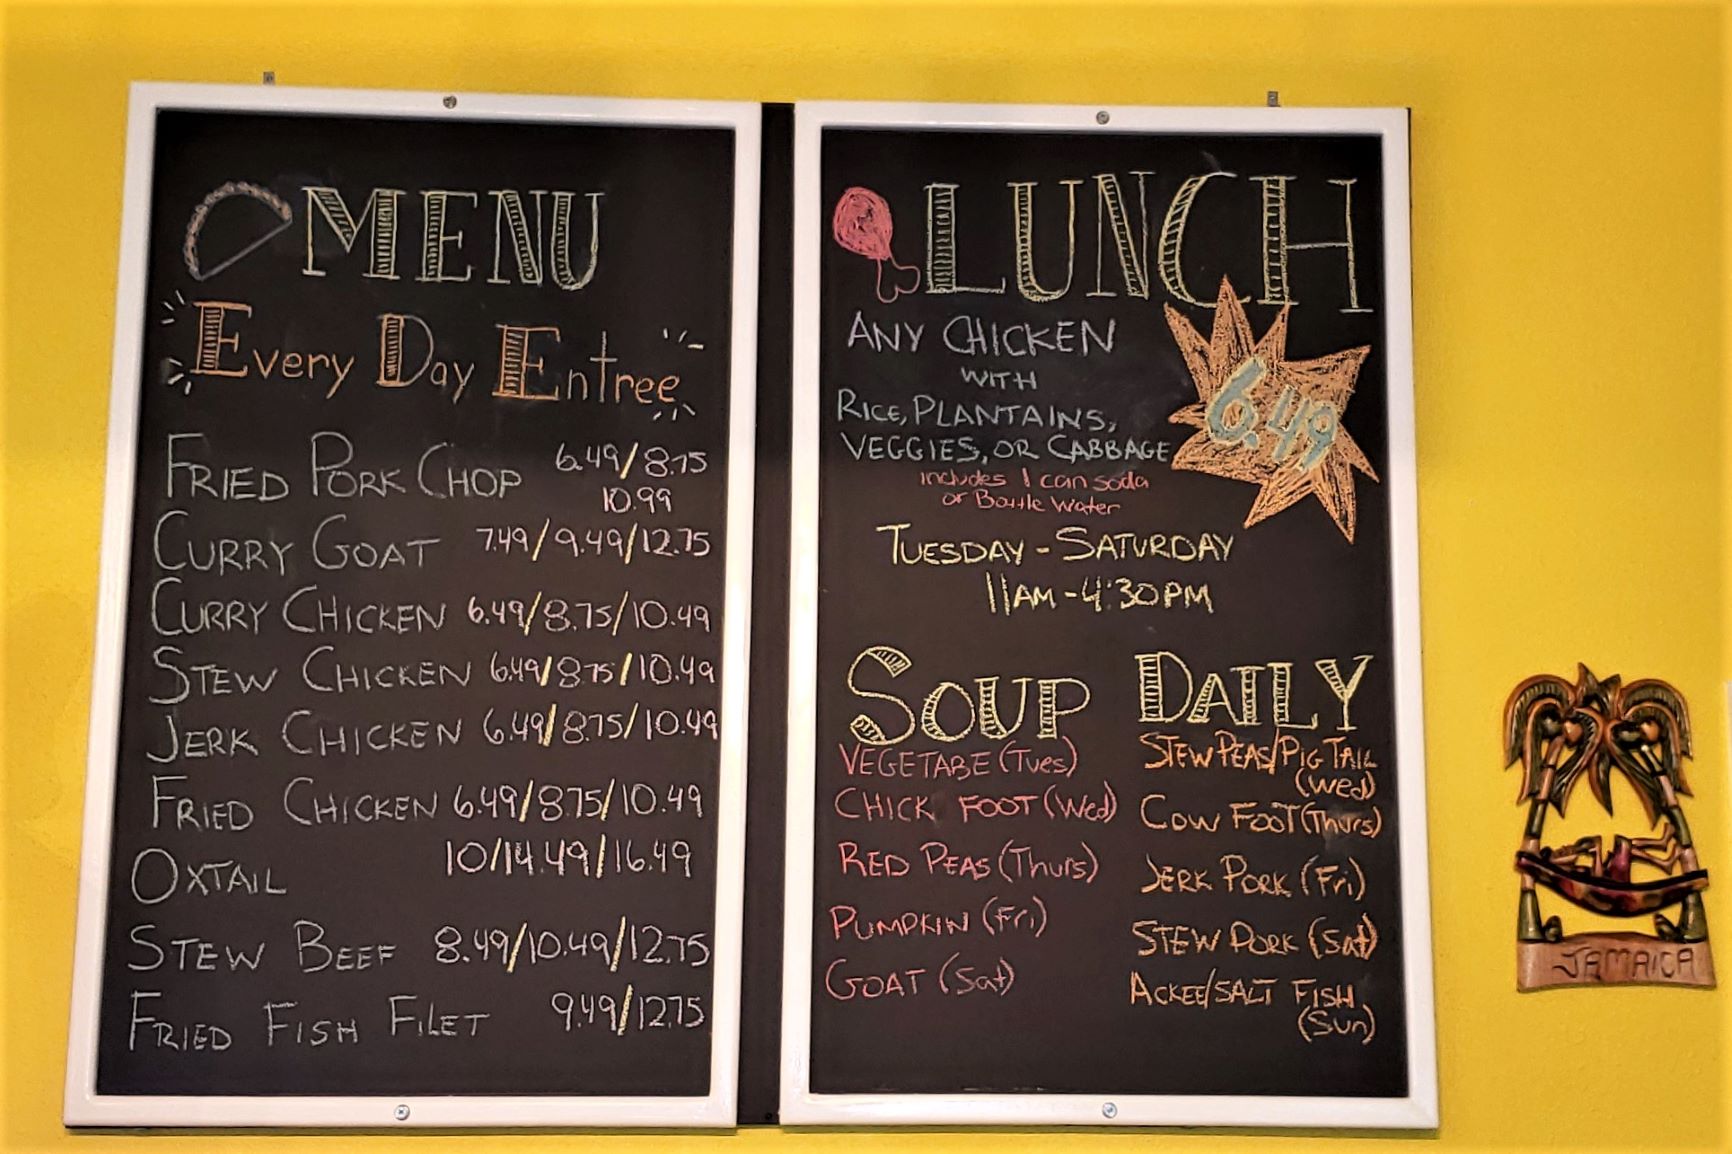 MENU
Every Day Entree
FRIED PORK CHOP 6.49/8.75
10.99
CURRY GOAT 7.49/9.49/12.75
CURRY CHICKEN 6.49/8.75/10.49
STEW CHICKEN 6.49/8.75/10.49
JERK CHICKEN 6.49/8.75/10.49
FRIED CHICKEN 6.49/8.75/10.49
OXTAIL 10/14.49/16.49
STEW BEEF 8.49/10.49/12.75
FRIED FISH FILET 9.49/12.75
LUNCH
ANY CHICKEN
WITH
RICE, PLANTAINS,
VEGGIES, OR CABBAGE
6.49
includes 1 can soda
or Bottle Water
TUESDAY - SATURDAY
11AM - 4:30PM
SOUP
VEGETABE (Tues)
CHICK FOOT (Wed)
RED PEAS (Thurs)
PUMPKIN (Fri)
GOAT (Sat)
DAILY
STEW PEAS/PIG TAIL
(Wed)
COW FOOT (Thurs)
JERK PORK (Fri)
STEW PORK (Sat)
ACKEE/SALT FISH
(Sun)
JAMAICA